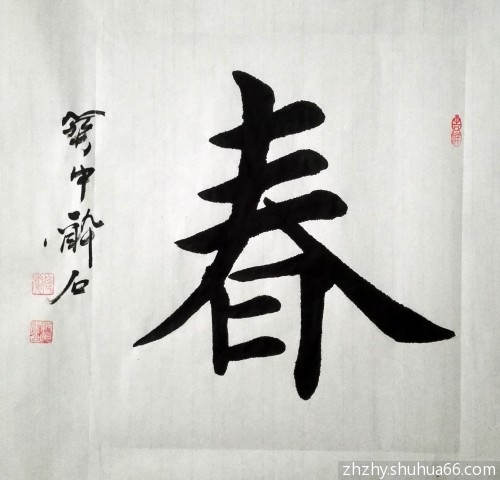 春
中醉石
zhzhy.shuhua66.com